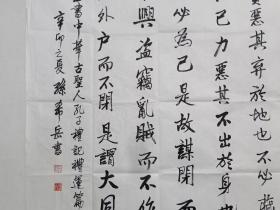 惡其弃於地也不必
己力惡其不出於身也
必為己是故謀閉
興盗竊亂賊而不
外户而不閉是謂大同
書中華古聖人孔子禮記禮運篇
辛卯之夏 孫希岳書